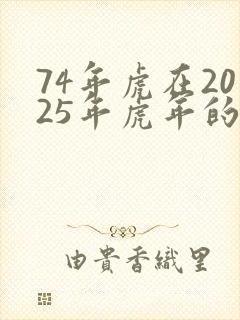 74年虎在20
25年虎年的
由貴香織里